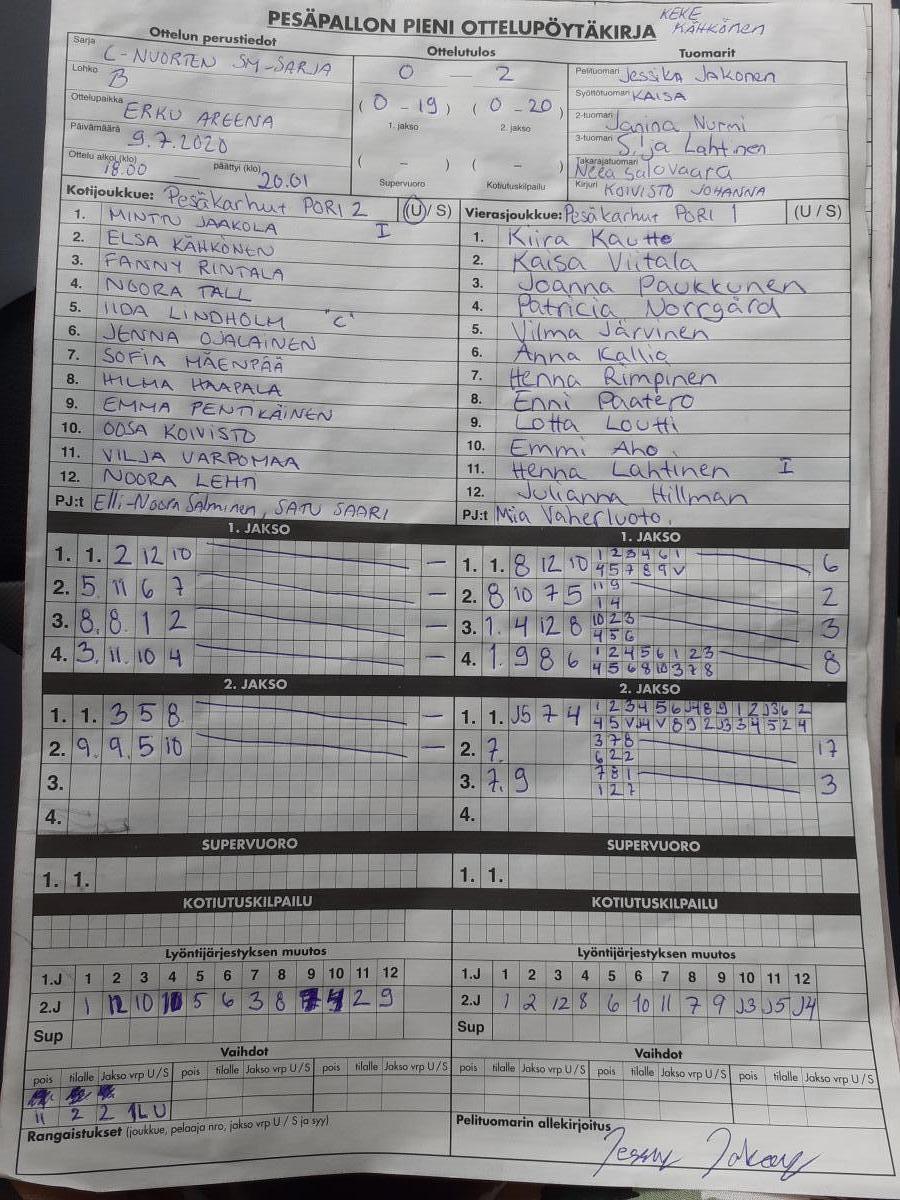 PESÄPALLON PIENI OTTELUPÖYTÄKIRJA
KEKE KÄHKÖNEN
Ottelun perustiedot
Sarja C-NUORTEN SM-SARJA
Lohko B
Ottelupaikka ERKU AREENA
Päivämäärä 9.7.2020
Ottelu alkoi (klo) 18.00 päättyi (klo) 20.01
Ottelutulos
0 – 2
(0 - 19) (0 - 20)
1. jakso 2. jakso
( – ) ( – )
Supervuoro Kotiutuskilpailu
Tuomarit
Pelituomari Jessika Jakonen
Syöttötuomari KAISA
2-tuomari Janina Nurmi
3-tuomari Silja Lahtinen
Takarajatuomari Neea Salovaara
Kirjuri KOIVISTO JOHANNA
Kotijoukkue: Pesäkarhut PORI 2 (U / S)
1. MINTTU JAAKOLA I
2. ELSA KÄHKÖNEN
3. FANNY RINTALA
4. NOORA TALL
5. IIDA LINDHOLM "C"
6. JENNA OJALAINEN
7. SOFIA MÄENPÄÄ
8. HILMA HAAPALA
9. EMMA PENTIKÄINEN
10. OOSA KOIVISTO
11. VILJA VARPOMAA
12. NOORA LEHTI
PJ:t Elli-Noora Salminen, SATU SAARI
Vierasjoukkue: Pesäkarhut PORI 1 (U / S)
1. Kiira Kautto
2. Kaisa Viitala
3. Joanna Paukkunen
4. Patricia Norrgård
5. Vilma Järvinen
6. Anna Kallio
7. Henna Rimpinen
8. Enni Paatero
9. Lotta Loutti
10. Emmi Aho
11. Henna Lahtinen I
12. Julianna Hillman
PJ:t Mia Vaherluoto
1. JAKSO
1. 1. 2 12 10 –
2. 5 11 6 7 –
3. 8. 8 1 2 –
4. 3. 11. 10 4 –
1. JAKSO
1. 1. 8 12 10 1 2 3 4 6 1 6
4 5 7 8 9 V
2. 8 10 7 5 11 9 2
1 4
3. 1. 4 12 8 10 2 3 3
4 5 6
4. 1. 9 8 6 1 2 4 5 6 1 2 3 8
4 5 6 8 10 3 7 8
2. JAKSO
1. 1. 3 5 8 –
2. 9. 9 5 10 –
3.
4.
2. JAKSO
1. 1. J5 7 4 1 2 3 4 5 6 J4 8 9 1 2 J3 6 2
4 5 V J4 V 8 9 2 J3 3 4 5 2 4
2. 7. 3 7 8 17
6 2 2
3. 7. 9 7 8 1 3
1 2 7
4.
SUPERVUORO
1. 1.
SUPERVUORO
1. 1.
KOTIUTUSKILPAILU
KOTIUTUSKILPAILU
Lyöntijärjestyksen muutos
1.J 1 2 3 4 5 6 7 8 9 10 11 12
2.J 1 12 10 5 6 3 8 2 9
Sup
Lyöntijärjestyksen muutos
1.J 1 2 3 4 5 6 7 8 9 10 11 12
2.J 1 2 12 8 6 10 11 7 9 J3 J5 J4
Sup
Vaihdot
pois tilalle Jakso vrp U / S pois tilalle Jakso vrp U / S pois tilalle Jakso vrp U / S
11 2 2 1L U
Vaihdot
pois tilalle Jakso vrp U / S pois tilalle Jakso vrp U / S pois tilalle Jakso vrp U / S
Rangaistukset (joukkue, pelaaja nro, jakso vrp U / S ja syy)
Pelituomarin allekirjoitus